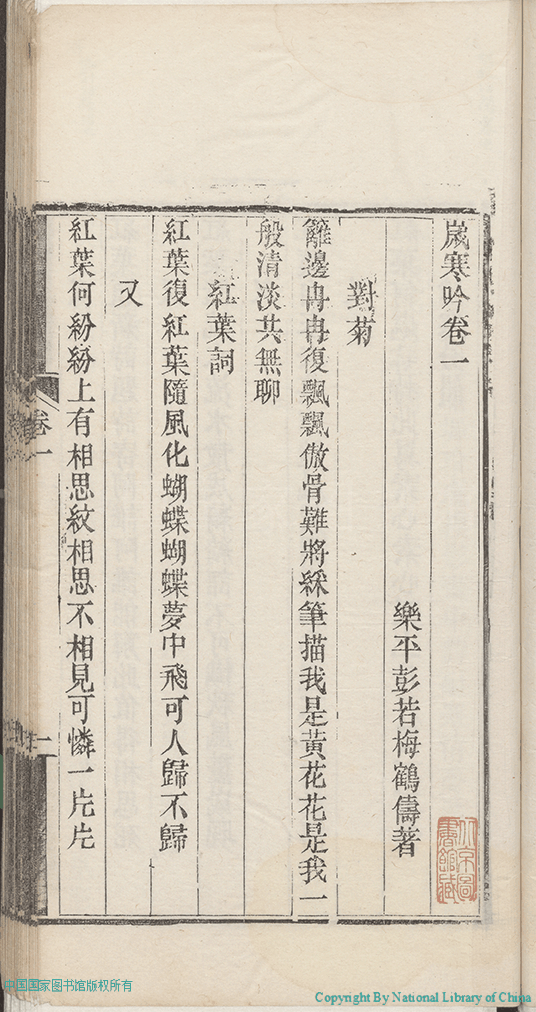 歲寒吟卷一
樂平彭若梅鶴儔著
對菊
籬邊冉冉復飄飄傲骨難將綵筆描我是黃花花是我一
般清淡共無聊
紅葉詞
紅葉復紅葉隨風化蝴蝶蝴蝶夢中飛可人歸不歸
又
紅葉何紛紛上有相思紋相思不相見可憐一片片
卷一
一
北京圖書館藏
中国国家图书馆版权所有
Copyright By National Library of China